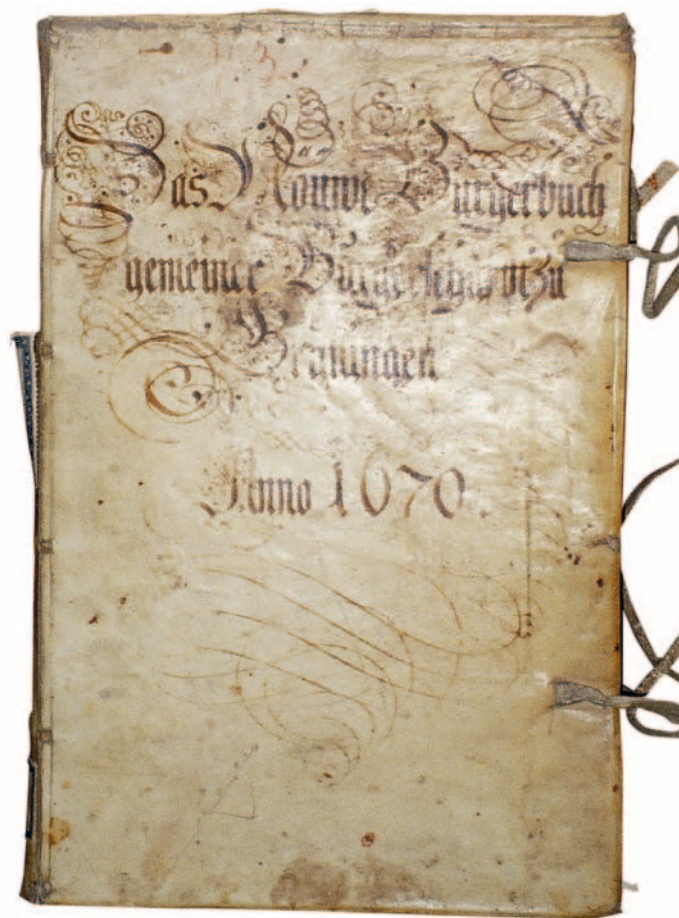 Das Neuwe Burgerbuch
gemeiner Burgerschafft zu
Grüningen
Anno 1670.